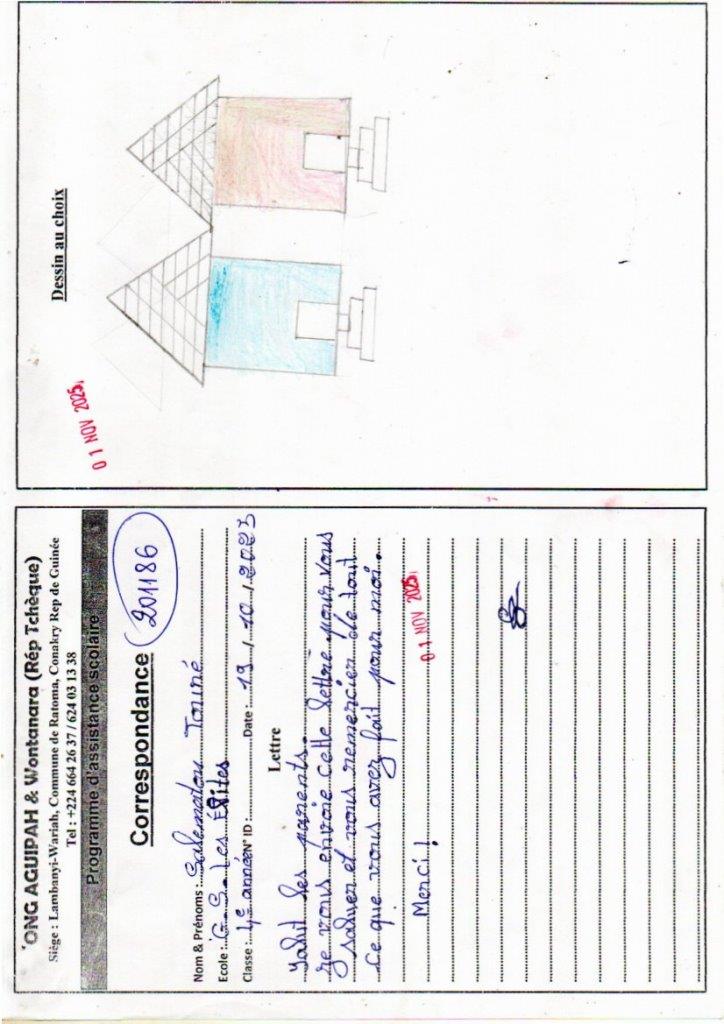 ONG AGUIPAH & Wontanara (Rép Tchèque)
Siège : Lambanyi-Wariah, Commune de Ratoma, Conakry Rep de Guinée
Tel : +224 664 26 37 / 624 03 13 38
Programme d'assistance scolaire
Correspondance
201186
Nom & Prénoms : Salematou Touné
Ecole : G.S. Les Élites
Classe : 4e année N° ID : Date : 19 / 10 / 2025
Lettre
Salut les parents.
Je vous envoie cette lettre pour vous
saluer et vous remercier de tout
ce que vous avez fait pour moi.
Merci !
01 NOV 2025
Dessin au choix
01 NOV 2025